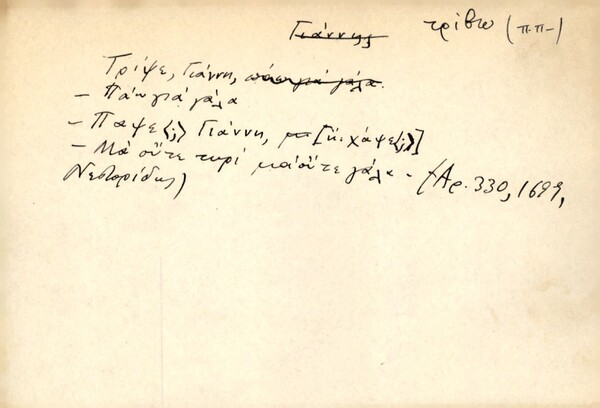 Γιάννης τρίβω (π.π-)
Τρίψε, Γιάννη, πάω γιά γάλα.
- Πάω γιά γάλα
- Παψε<;> Γιάννη, [ἤ: χάψε<;>]
- Μὰ οὔτε τυρί μα οὔτε γάλα - (Αρ. 330, 1699,
Νεστορίδης)